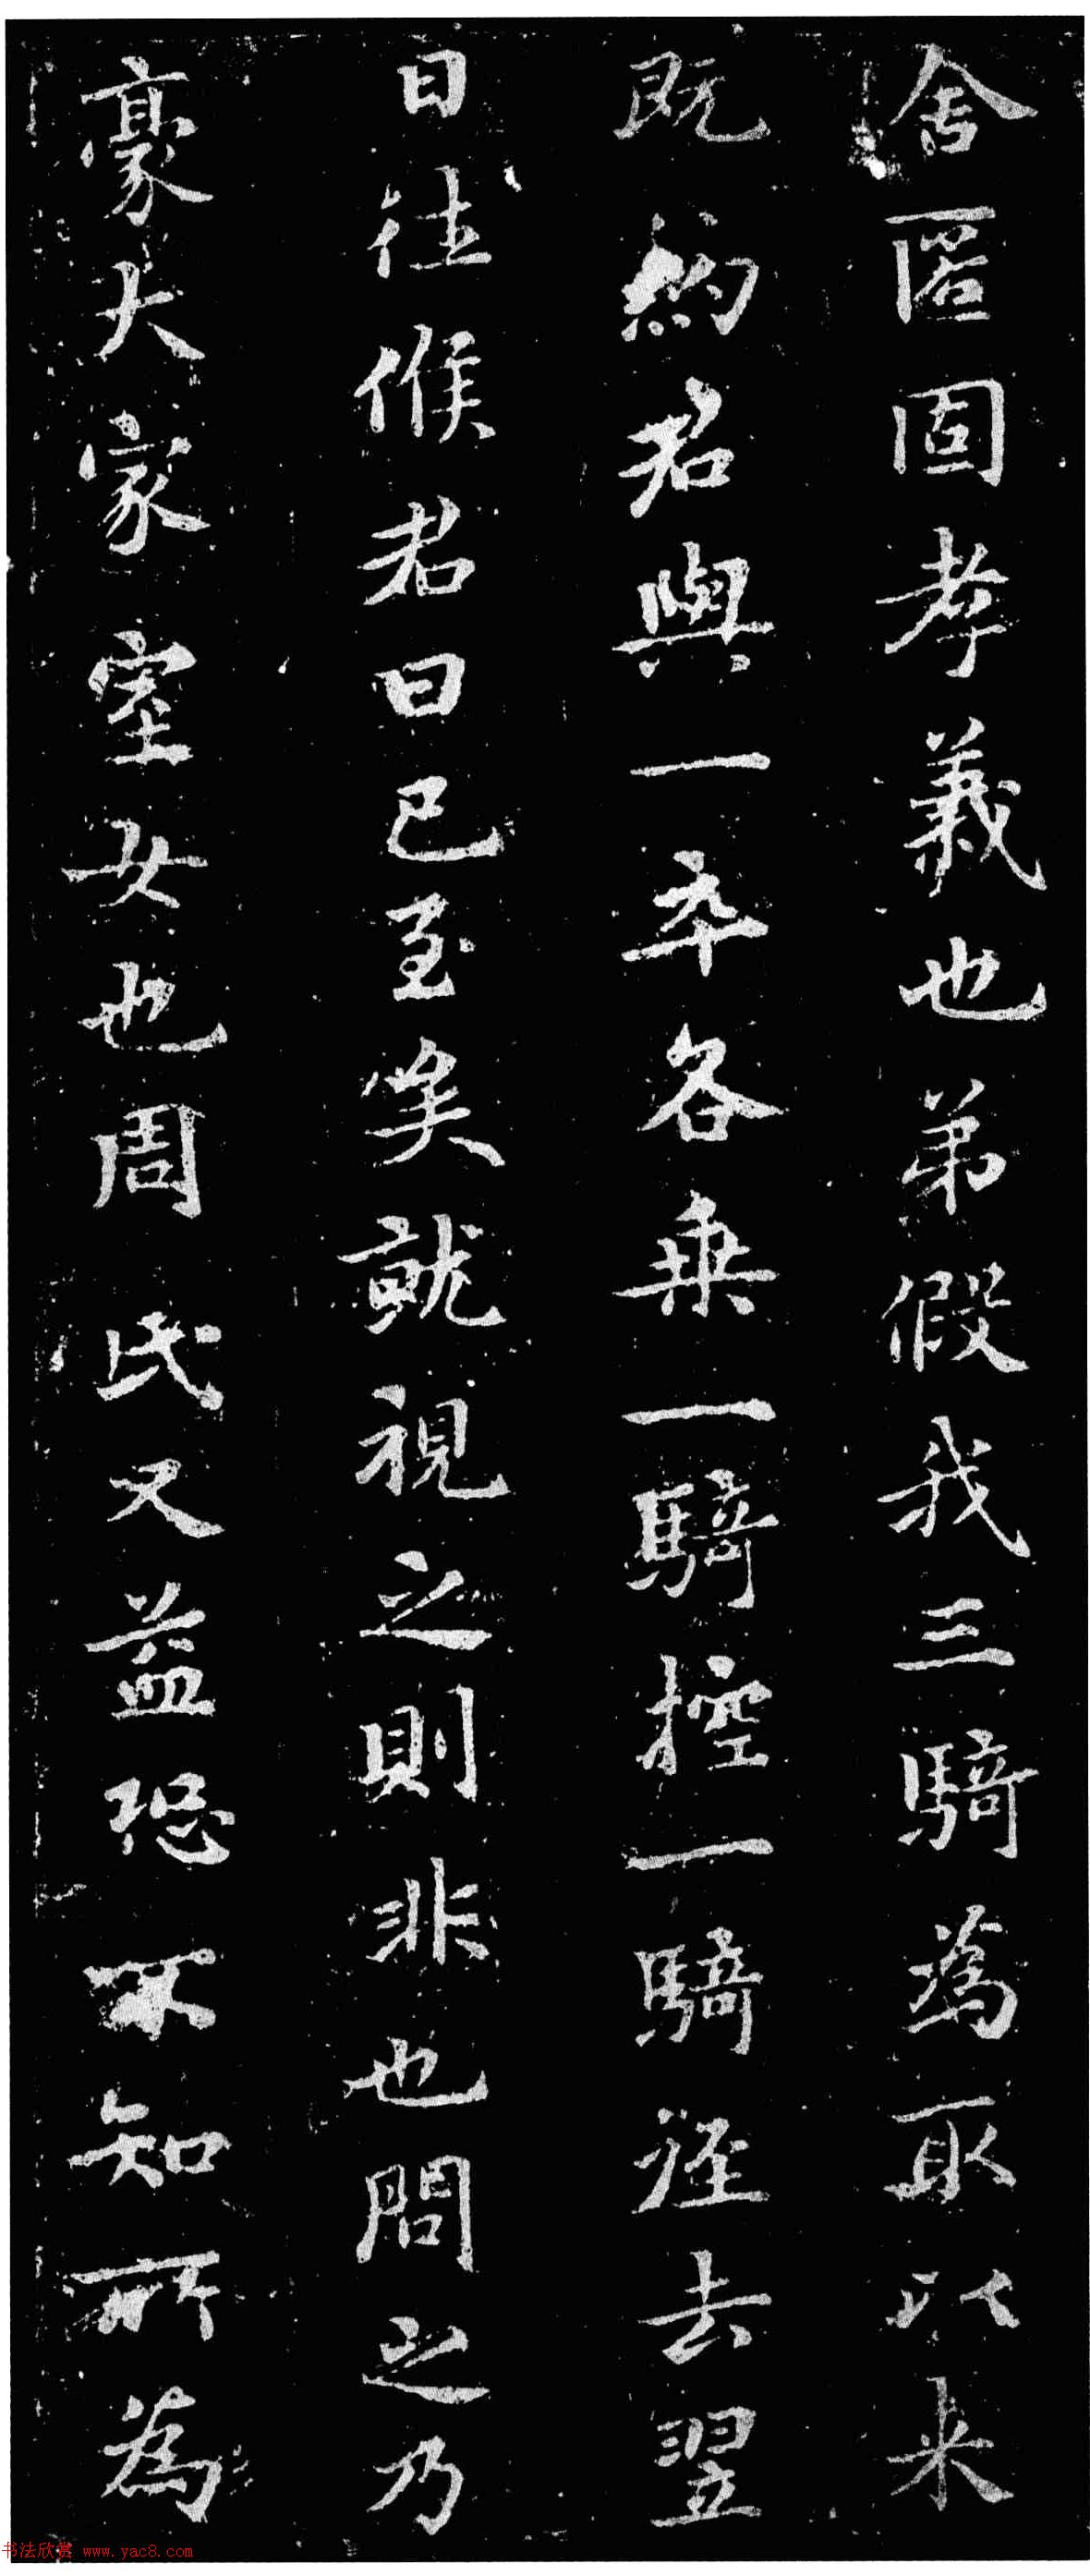 舍匿固孝義也弟假我三騎為取以来
既約君與一卒各乗一騎控一騎径去翌
日往候君曰已至矣就視之則非也問之乃
豪大家室女也周氏又益恐不知所為
书法欣赏 www.yac8.com